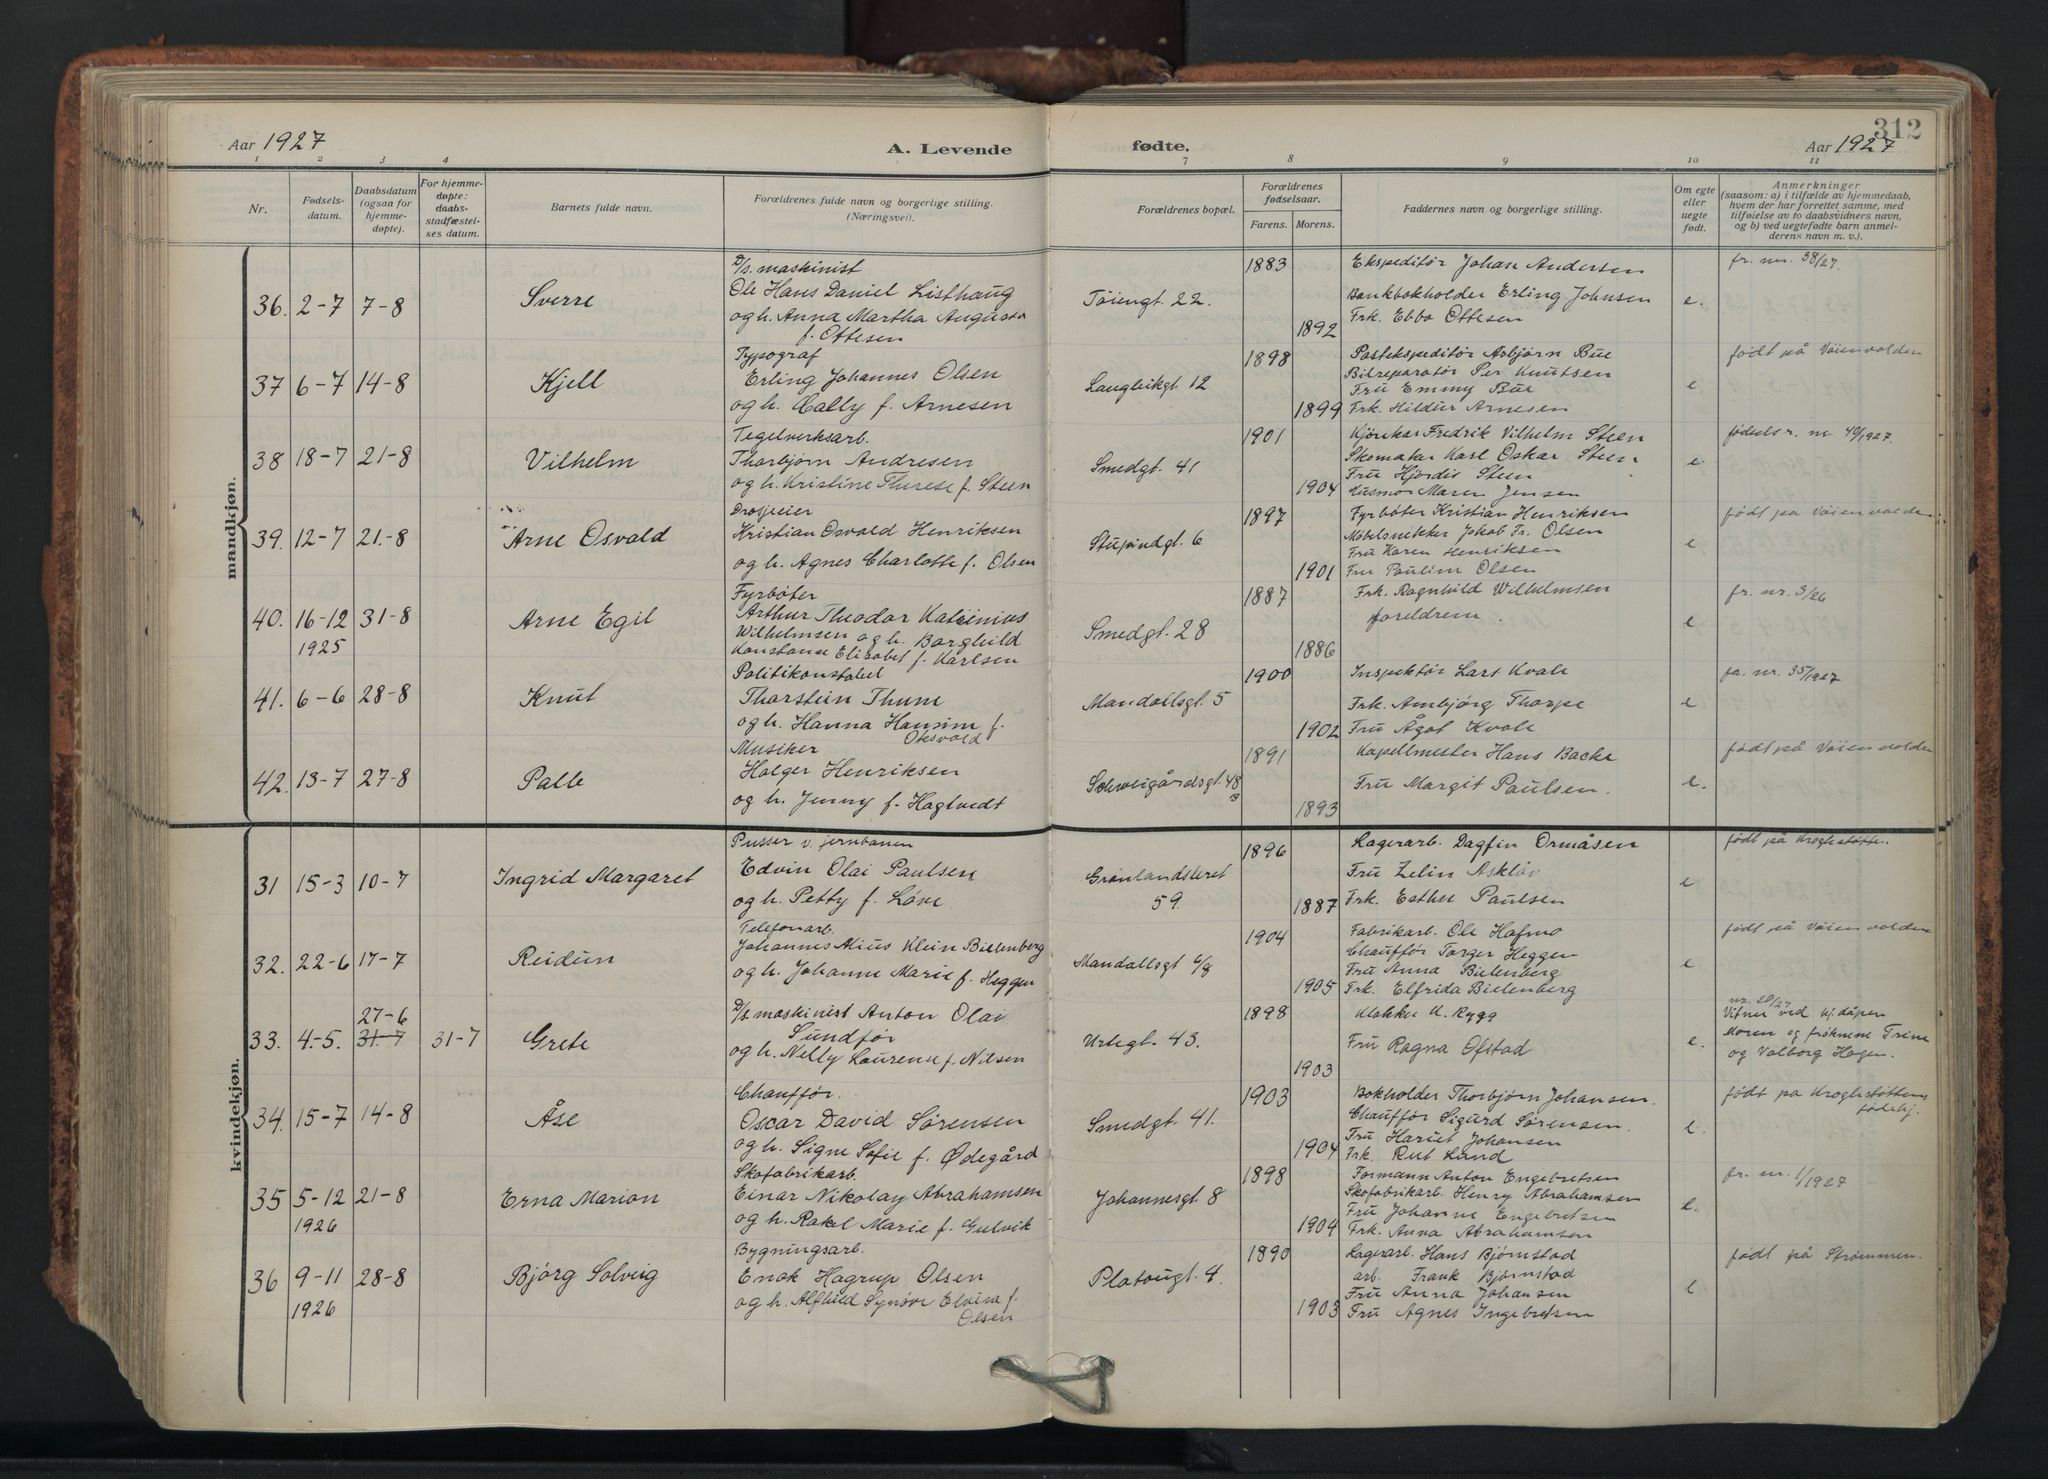 312
Aar 1927 A. Levende fødte. Aar 1927
1 2 3 4 7 8 9 10 11
Nr.
Fødsels-
datum.
Daabsdatum
(ogsaa for
hjemme-
døpte).
For hjemme-
døpte:
daabs-
stadfæstel-
ses datum.
Barnets fulde navn.
Forældrenes fulde navn og borgerlige stilling.
(Næringsvei).
Forældrenes bopæl.
Forældrenes
fødselsaar.
Farens. Morens.
Faddernes navn og borgerlige stilling.
Om egte
eller
uegte
født.
Anmerkninger
(saasom: a) i tilfælde av hjemmedaab,
hvem der har forrettet samme, med
tilføielse av to daabsvidners navn,
og b) ved uegtefødte barn anmel-
derens navn m. v.).
mandkjøn.
36. 2-7 7-8 Sverre
D/s. maskinist
Ole Hans Daniel Listhaug
og h. Anna Martha Augusta
f. Ottesen
Tøiengt. 22.
1883
1892
Ekspeditør Johan Andersen
Bankbokholder Erling Johnsen
Frk. Ebba Ottesen
e.
fr. nr. 38/27.
37 6-7 14-8 Kjell
Typograf
Erling Johannes Olsen
og h. Cally f. Arnesen
Langleikgt 12
1898
1899
Postekspeditør Asbjørn Bue
Bilreparatør Per Knutsen
Fru Emmy Bue
Frk. Hildur Arnesen
e
født på Vøienvolden
38 18-7 21-8 Vilhelm
Teglverksarb.
Thorbjørn Andresen
og h. Kristine Therese f. Steen
Smedgt. 41
1901
1904
Kjørekar Fredrik Vilhelm Steen
Skomaker Karl Oskar Steen
Fru Hjørdis Steen
Husmor Maren Jensen
e
fødselsr. nr. 40/1927.
39. 12-7 21.-8 Arne Osvald
Drosjeeier
Kristian Osvald Henriksen
og h. Agnes Charlotte f. Olsen
Stupindgt. 6
1897
1901
Fyrbøter Kristian Henriksen
Møbelsnikker Jakob Fr. Olsen
Fru Karen Henriksen
Fru Pauline Olsen
e
født på Vøienvolden
40. 16-12 31-8 Arne Egil
1925
Fyrbøter
Arthur Theodor
Wilhelmsen og h. Borghild
Konstanse Elisabet f. Karlsen
Smedgt. 28
1887
1886
Frk. Ragnhild Wilhelmsen
foreldrene.
e
fr. nr. 3/26
41. 6-6 28-8 Knut
Politikonstabel
Thorstein Thune
og h. Hanna Hansine f.
Oksvold
Mandallsgt. 5
1900
1902
Inspektør Lars Kvale
Frk. Ambjørg Thorpe
Fru Ågot Kvale
e
fa. nr. 35/1927
42. 13-7 27-8 Palle
Musiker
Holger Henriksen
og h. Jenny f. Hagtvedt
Schweigårdsgt. 48
B
1891
1893
Kapellmester Hans Backe
Fru Margit Paulsen.
e.
født på Vøienvolden
kvindekjøn.
31 15-3 10-7 Ingrid Margaret
Pusser v. jernbanen
Edvin Olai Paulsen
og h. Petty f. Løve
Grønlandsleret
59.
1896
1887
Lagerarb. Dagfin Ormåsen
Fru Zelin Askløv
Frk. Esther Paulsen
e
født på Kroghstøtten
32. 22-6 17-7 Reidun
Telefonarb.
Johannes Alius Klein Bielenberg
og h. Johanne Marie f. Heggen
Mandallsgt 6/8
1904
1905
Fabrikarb. Ole Hafmo
Chauffør Torger Heggen
Fru Anna Bielenberg
Frk. Elfrida Bielenberg
e
født på Vøienvolden
33. 4.-5. 27-6 31-7 31-7 Grete
D/s. maskinist Anton Olai
Sundfør
og h. Nelly Laurense f. Nilsen
Urtegt. 43.
1898
1903
Klokker K. Rygg
Fru Ragna Ofstad
e.
nr. 28/27
Vitner ved hj.dåpen
Moren og frøknene Trine
og Valborg Hagen.
34. 15-7 14-8 Åse
Chauffør.
Oscar David Sørensen
og h. Signe Sofie f. Ødegård
Smedgt. 41.
1903
1904
Bokholder Thorbjørn Johansen.
Chauffør Sigurd Sørensen.
Fru Hariet Johansen
Frk. Rut Lund
e.
født på Kroghstøttens
fødehj.
35 5-12 21-8 Erna Marion
1926
Skofabrikarb.
Einar Nikolay Abrahamsen
og h. Rakel Marie f. Gulvik
Johannesgt 8
1898
1904
Formann Anton Engebretsen
Skofabrikarb. Henry Abrahamsen
Fru Johanne Engebretsen
Frk. Anna Abrahamsen
e.
fr. nr. 1/1927
36 9-11 28-8 Bjørg Solveig
1926
Bygningsarb.
Enok Hagrup Olsen
og h. Alfhild Synøve Elvira f.
Olsen
Platougt. 4.
1890
1903
Lagerarb. Hans Bjørnstad
arb. Frank Bjørnstad
Fru Anna Johansen
Fru Agnes Ingebretsen
e
født på Strømmen.